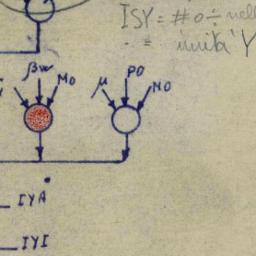 ISY = # o ÷ nell
. = unità Y
βw Mo μ PO NO
IYA
IYI